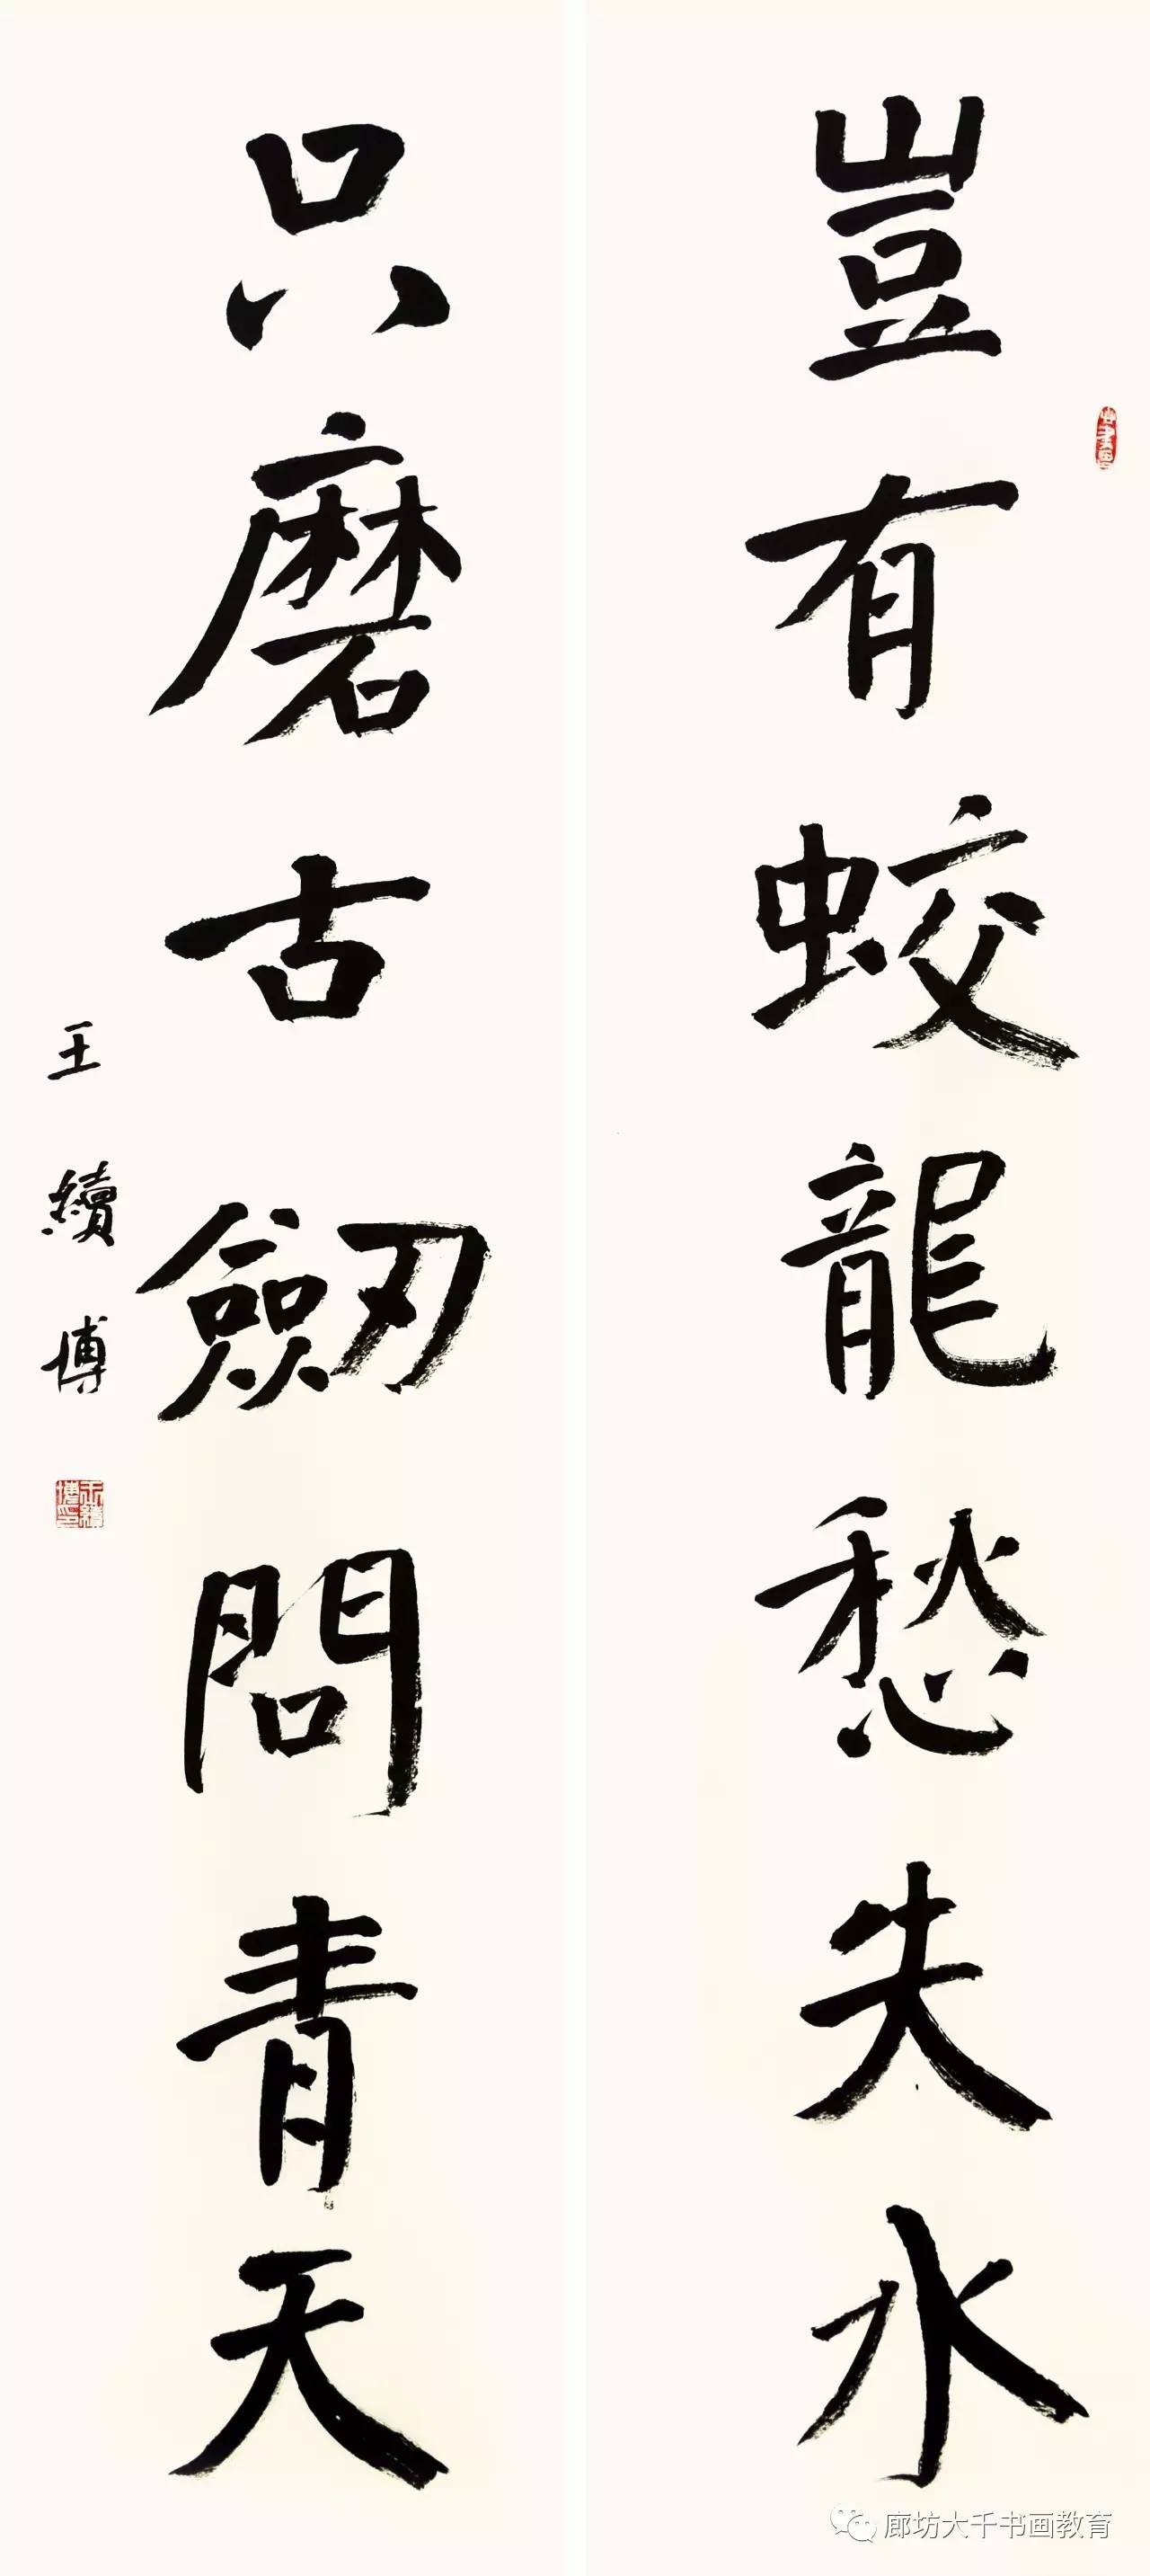 豈有蛟龍愁失水
只磨古劒問青天
王續博
廊坊大千书画教育